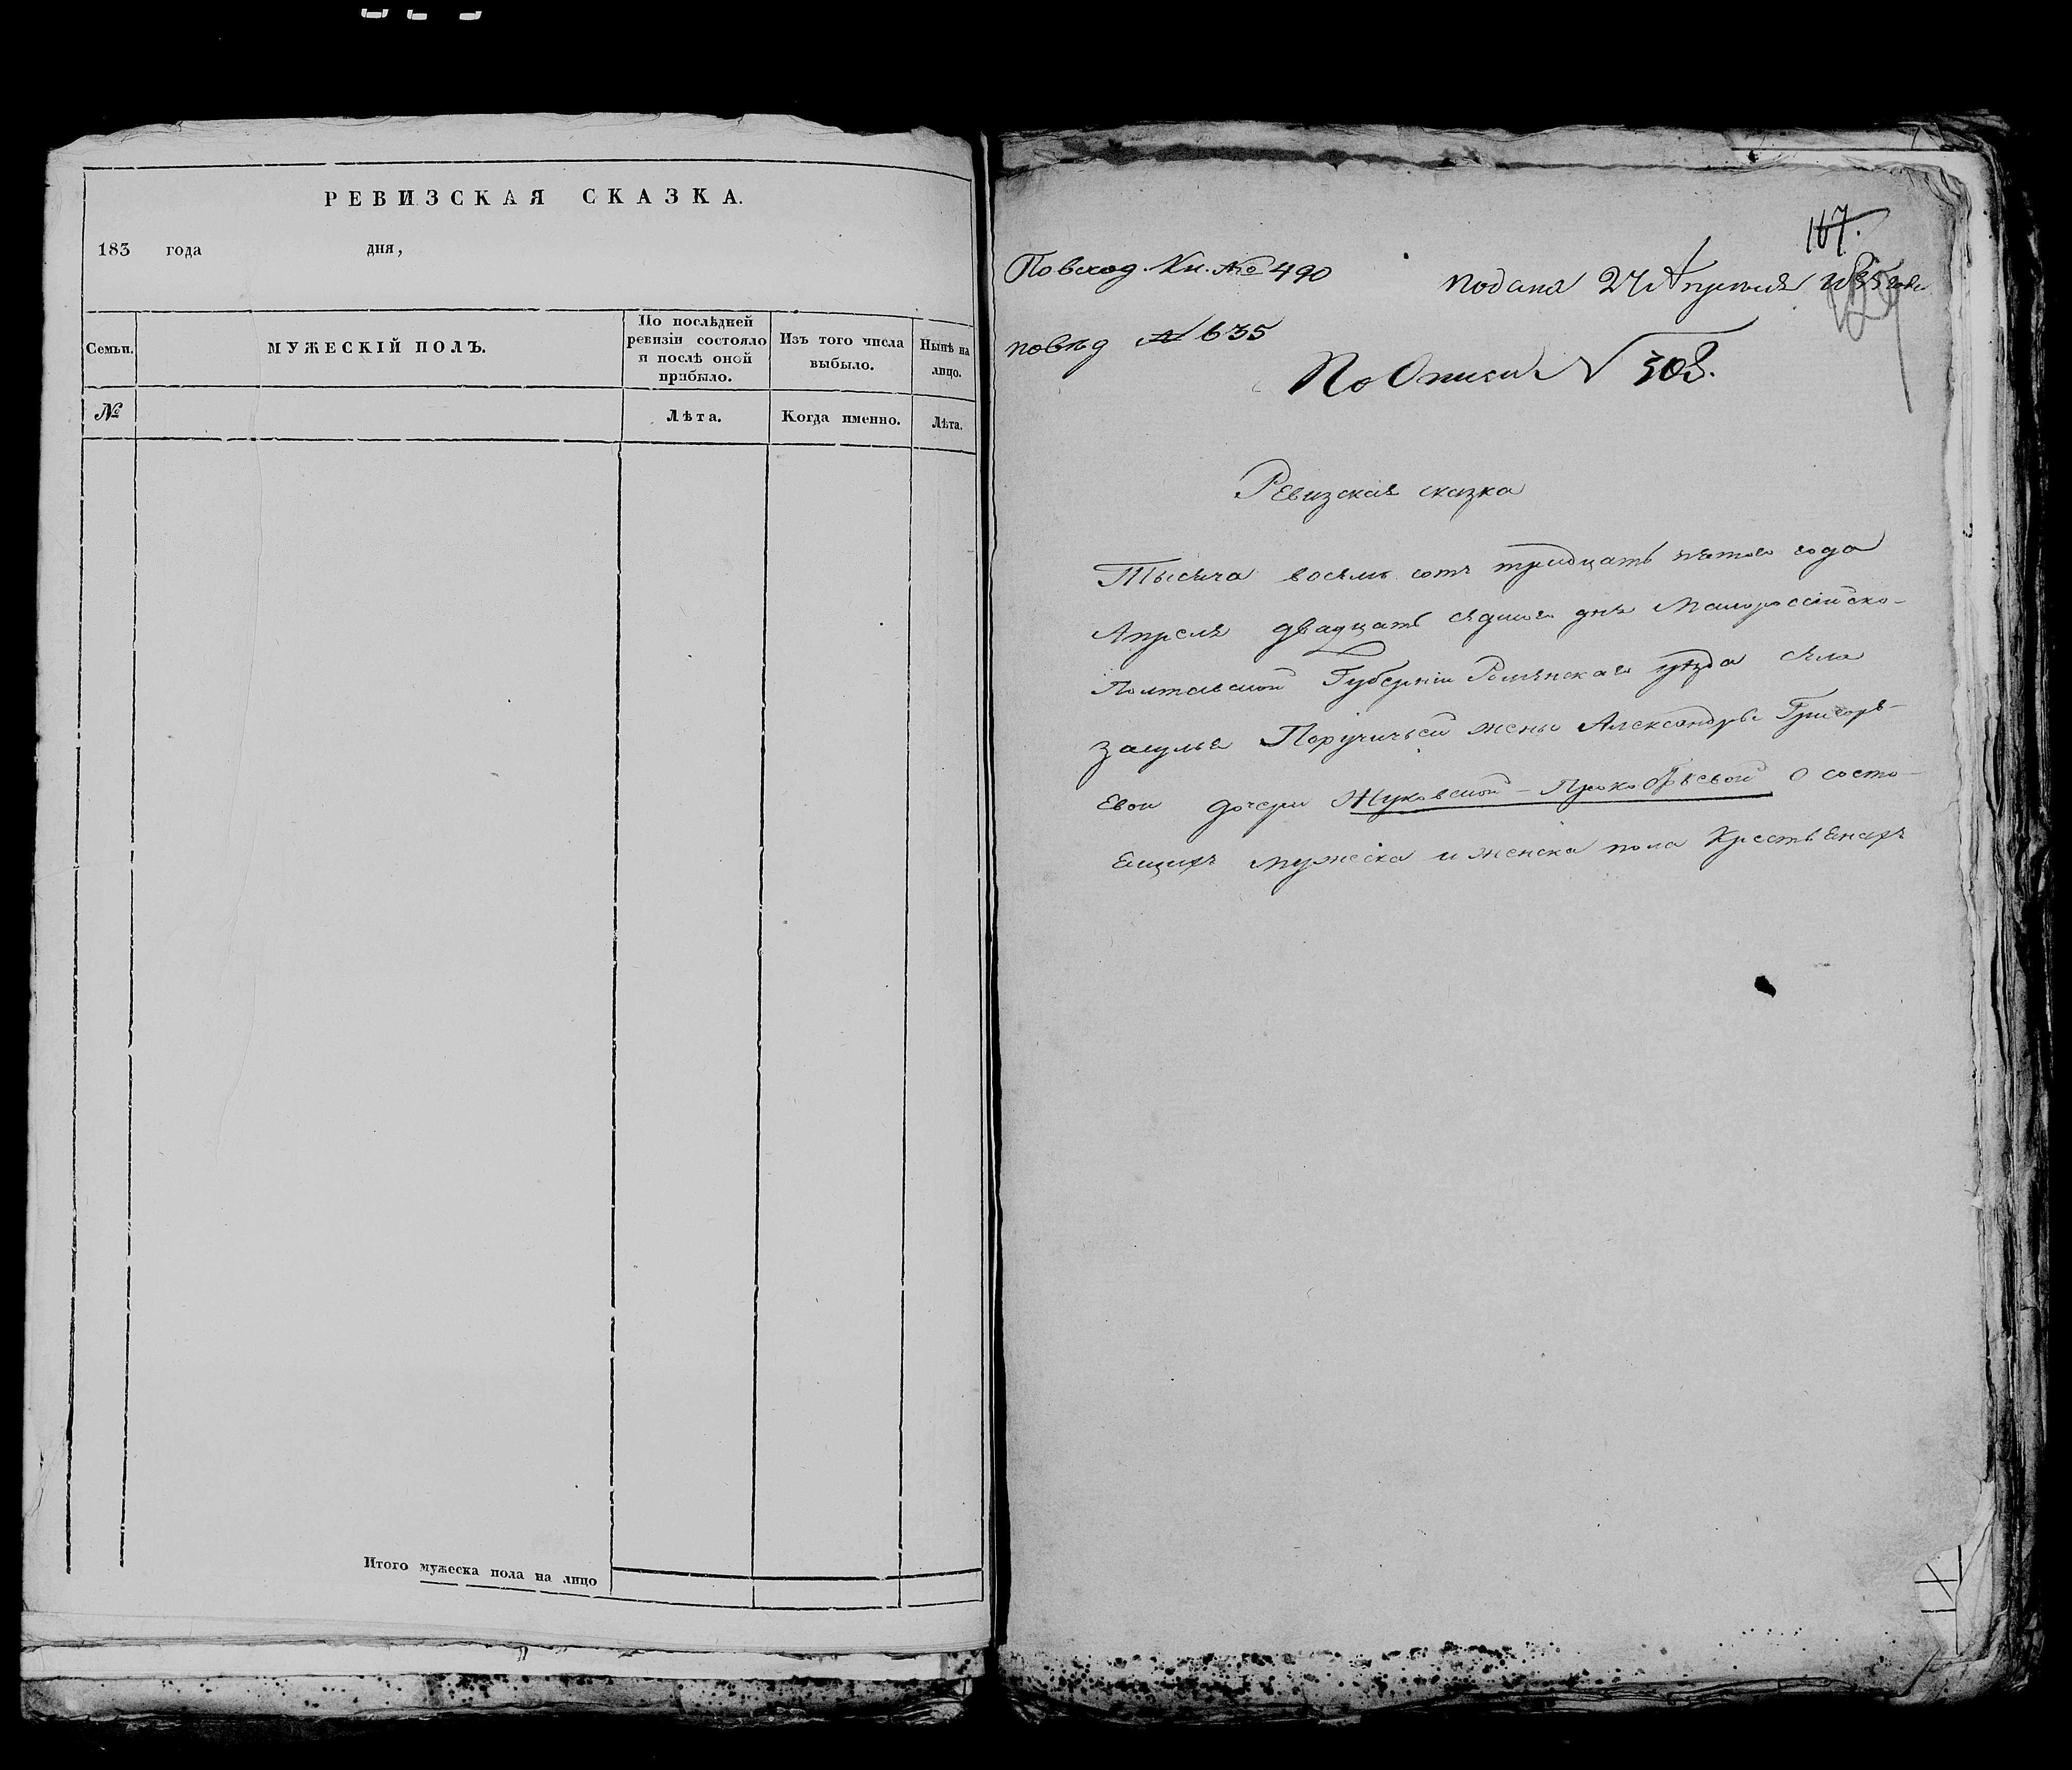 РЕВИЗСКАЯ СКАЗКА.
183 года дня,
Семьи. МУЖЕСКІЙ ПОЛЪ. По послѣдней ревизіи состояло и послѣ оной прибыло. Изъ того числа выбыло. Нынѣ на лицо.
№ Лѣта. Когда именно. Лѣта.
Итого мужеска пола на лицо
167.
По вход. Кн. № 490
Подана 27 Апреля 1835 года
№ 635
По Описи № 303.
Ревизская сказка
Тысяча восемь сотъ тридцать пятого года
Апреля двадцать седмого дня Малороссійско-
Полтавской Губерніи Роменскаго уѣзда села
Засулья Поручичьей жены Александры Григорь-
евой дочери Жуковской - Прокофьевой о состо-
ящихъ мужеска и женска пола Крестьянахъ